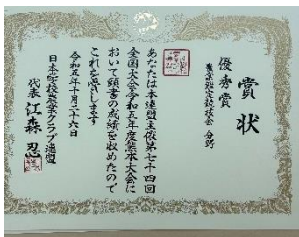 賞状
優秀賞
農業鑑定競技会 分野
あなたは本連盟主催第七十四回
全国大会令和五年度熊本大会に
おいて頭書の成績を収めたので
これを賞します
令和五年十月二十六日
日本学校農業クラブ連盟
代表 江森 忍